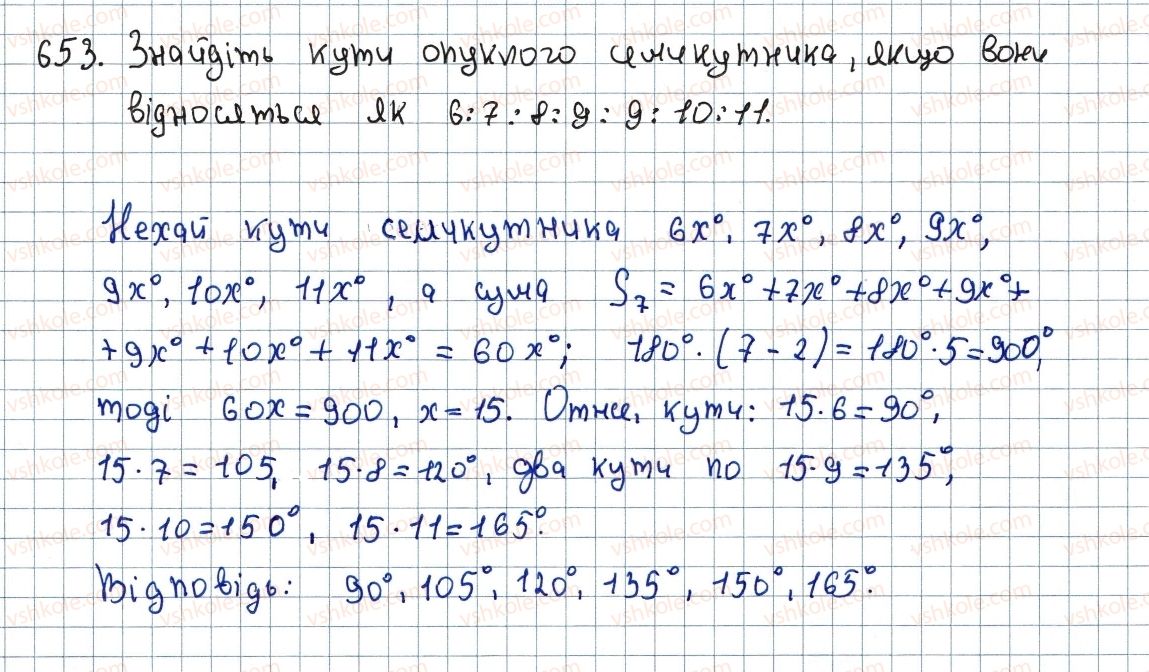 653. Знайдіть кути опуклого семикутника, якщо вони
відносяться як 6:7:8:9:9:10:11.
Нехай кути семикутника 6x°, 7x°, 8x°, 9x°,
9x°, 10x°, 11x°, а сума S₇ = 6x°+7x°+8x°+9x°+
+9x°+10x°+11x° = 60x°; 180°·(7-2)=180°·5=900°,
тоді 60x=900, x=15. Отже, кути: 15·6=90°,
15·7=105, 15·8=120°, два кути по 15·9=135°,
15·10=150°, 15·11=165°.
Відповідь: 90°, 105°, 120°, 135°, 150°, 165°.